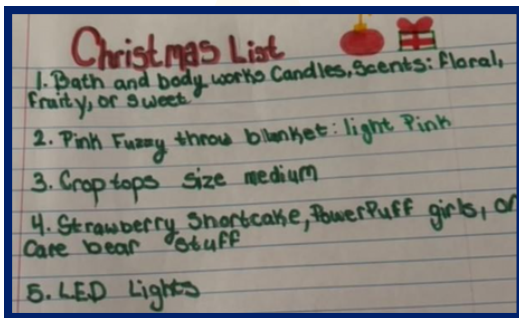 Christmas List
1. Bath and body works Candles, Scents: floral,
Fruity, or sweet
2. Pink Fuzzy throw blanket: light Pink
3. Crop tops size medium
4. Strawberry Shortcake, PowerPuff girls, or
Care bear stuff
5. LED Lights